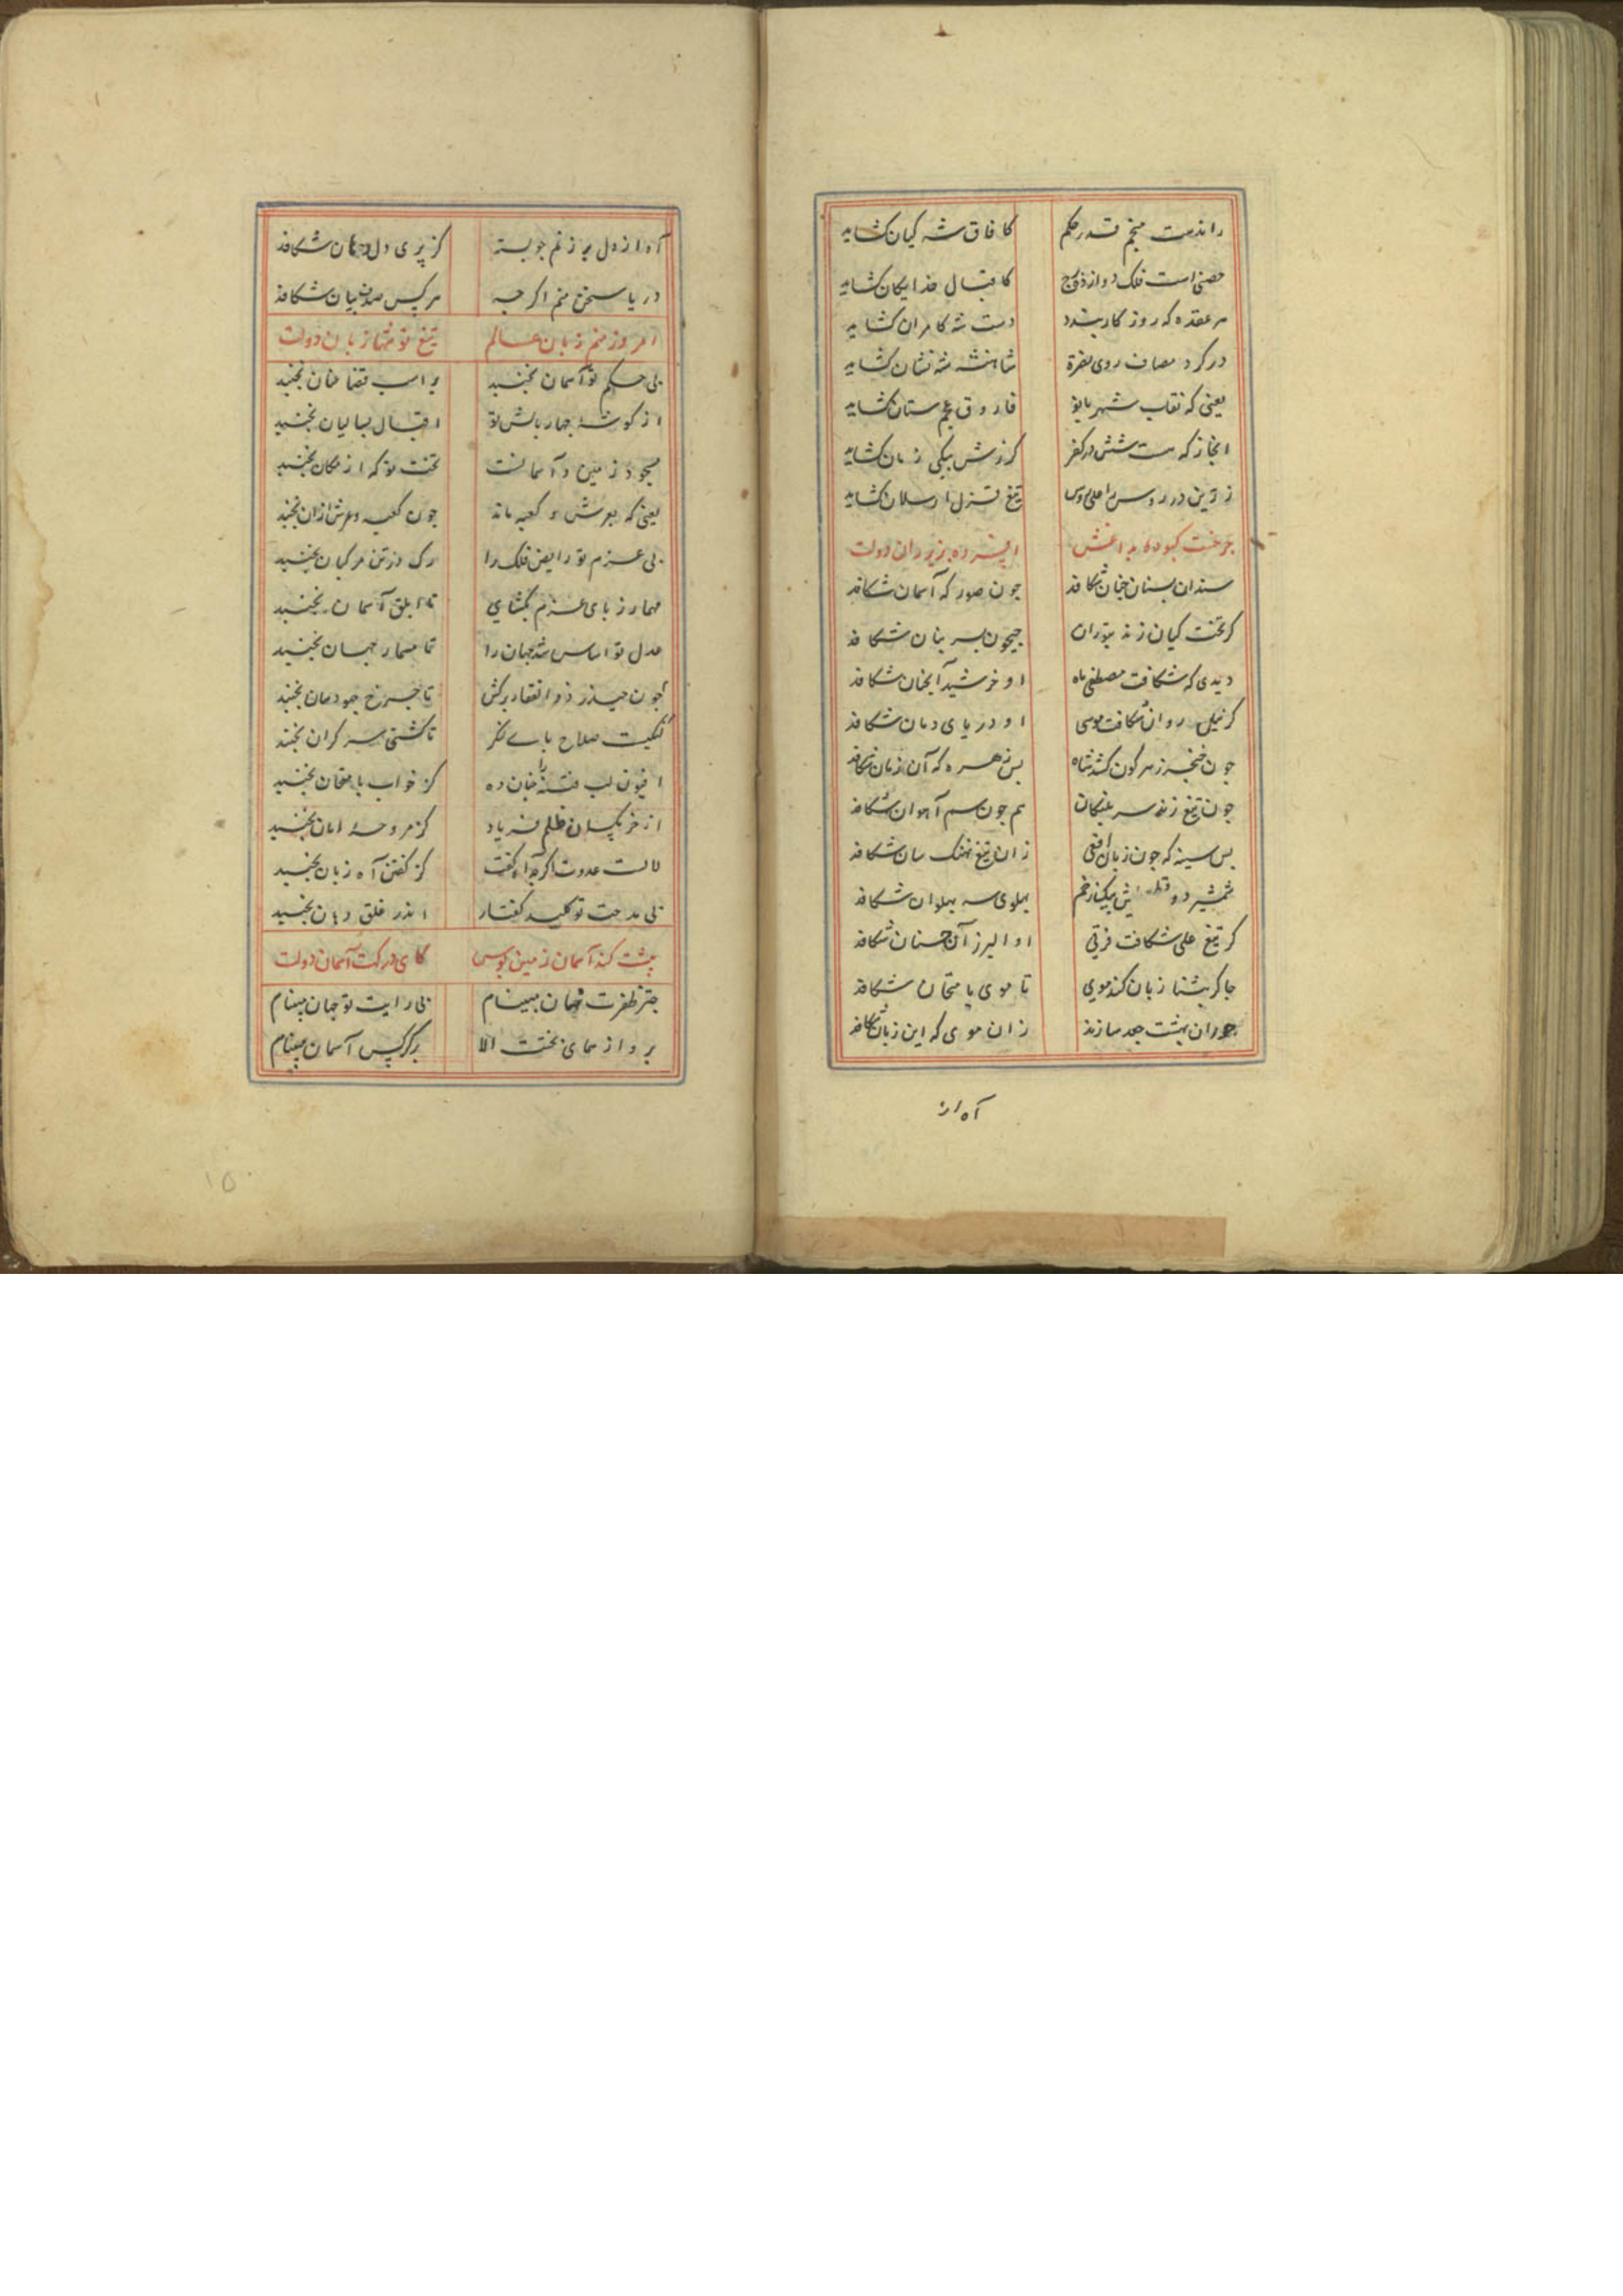 راندست منجم قدر حکم کافاق شه کیان کشاید
حصنی است فلک دوازده برج کاقبال خدایکان کشاید
هر عقده که روزکار بندد دست شه کامران کشاید
در کرد مصاف روی نصرة شاهنشه شه نشان کشاید
یعنی که نقاب شهربانو فاروق عجم ستان کشاید
انجاز که هست شش در کفر کرزش بیکی زمان کشاید
زرین در روس را علی روس تیغ قزل ارسلان کشاید
جرخست کبوده بداغش افسرده بزیر ران دولت
سندان بسنان جنان شکافد جون صور که آسمان شکافد
کر تخت کیان زند بتوران جیحون بسر بنان شکافد
دیدی که شکافت مصطفی ماه او خرشید آنجنان شکافد
کر نیل روان شکافت موسی او دریای دمان شکافد
جون خنجر زهرکون کشد شاه بس زهره که آن زمان شکافد
جون تیغ زند سر پلنکان هم جون سم آهوان شکافد
بس سینه که جون زبان افعی زان تیغ نهنک سان شکافد
شمشیر دو قطـ ـش بیک زخم بهلوی سه بهلوان شکافد
کر تیغ علی شکافت فرقی او البرز آن جنان شکافد
جاکر بثنا زبان کند موی تا موی بامتحان شکافد
حوران بهشت جعد سازند زان موی که این زبان شکافد
آه از
آه از دل بر زنم جو بسته کز بری دل دهان شکافد
دریا سخن منم اکرجه هر کس صدف بیان شکافد
امروز منم زبان عالم تیغ تو نتها زبان دولت
بی حکم تو آسمان نجنبد بر اسب قضا عنان نجنبد
از کوشهٔ جهار بالش تو اقبال بسالیان نجنبد
مسجود زمین و آسمانست تخت تو که از مکان نجنبد
یعنی که بعرش و کعبه ماند جون کعبه و عرش ازان نجنبد
بی عزم تو رایض فلک را رک در تن مرکبان نجنبد
مهمار زبای عزم بکشای تا ابلق آسمان نجنبد
عدل تو اساس شد جهان را تا مسمار جهان نجنبد
جون حیدر ذو الفقار برکش تا جرخ جهود سان نجنبد
لنکیست صلاح بای لنکر تا کشتی سر کران نجنبد
افیون لب فتنه را جنان ده کز خواب بامتحان نجنبد
از خرمکسان ظلم فریاد کز مروحهٔ امان نجنبد
لالست عدوت اکرجه آه کفت کز کفتن آه زبان نجنبد
بی مدحت تو کلید کفتار اندر غلق دهان نجنبد
بیشت کند آسمان زمین بوس کای درکت آسمان دولت
جتر ظفرت نهان مبینام بی رایت تو جهان مبینام
برواز همای بختت الا بر کرکس آسمان مبینام